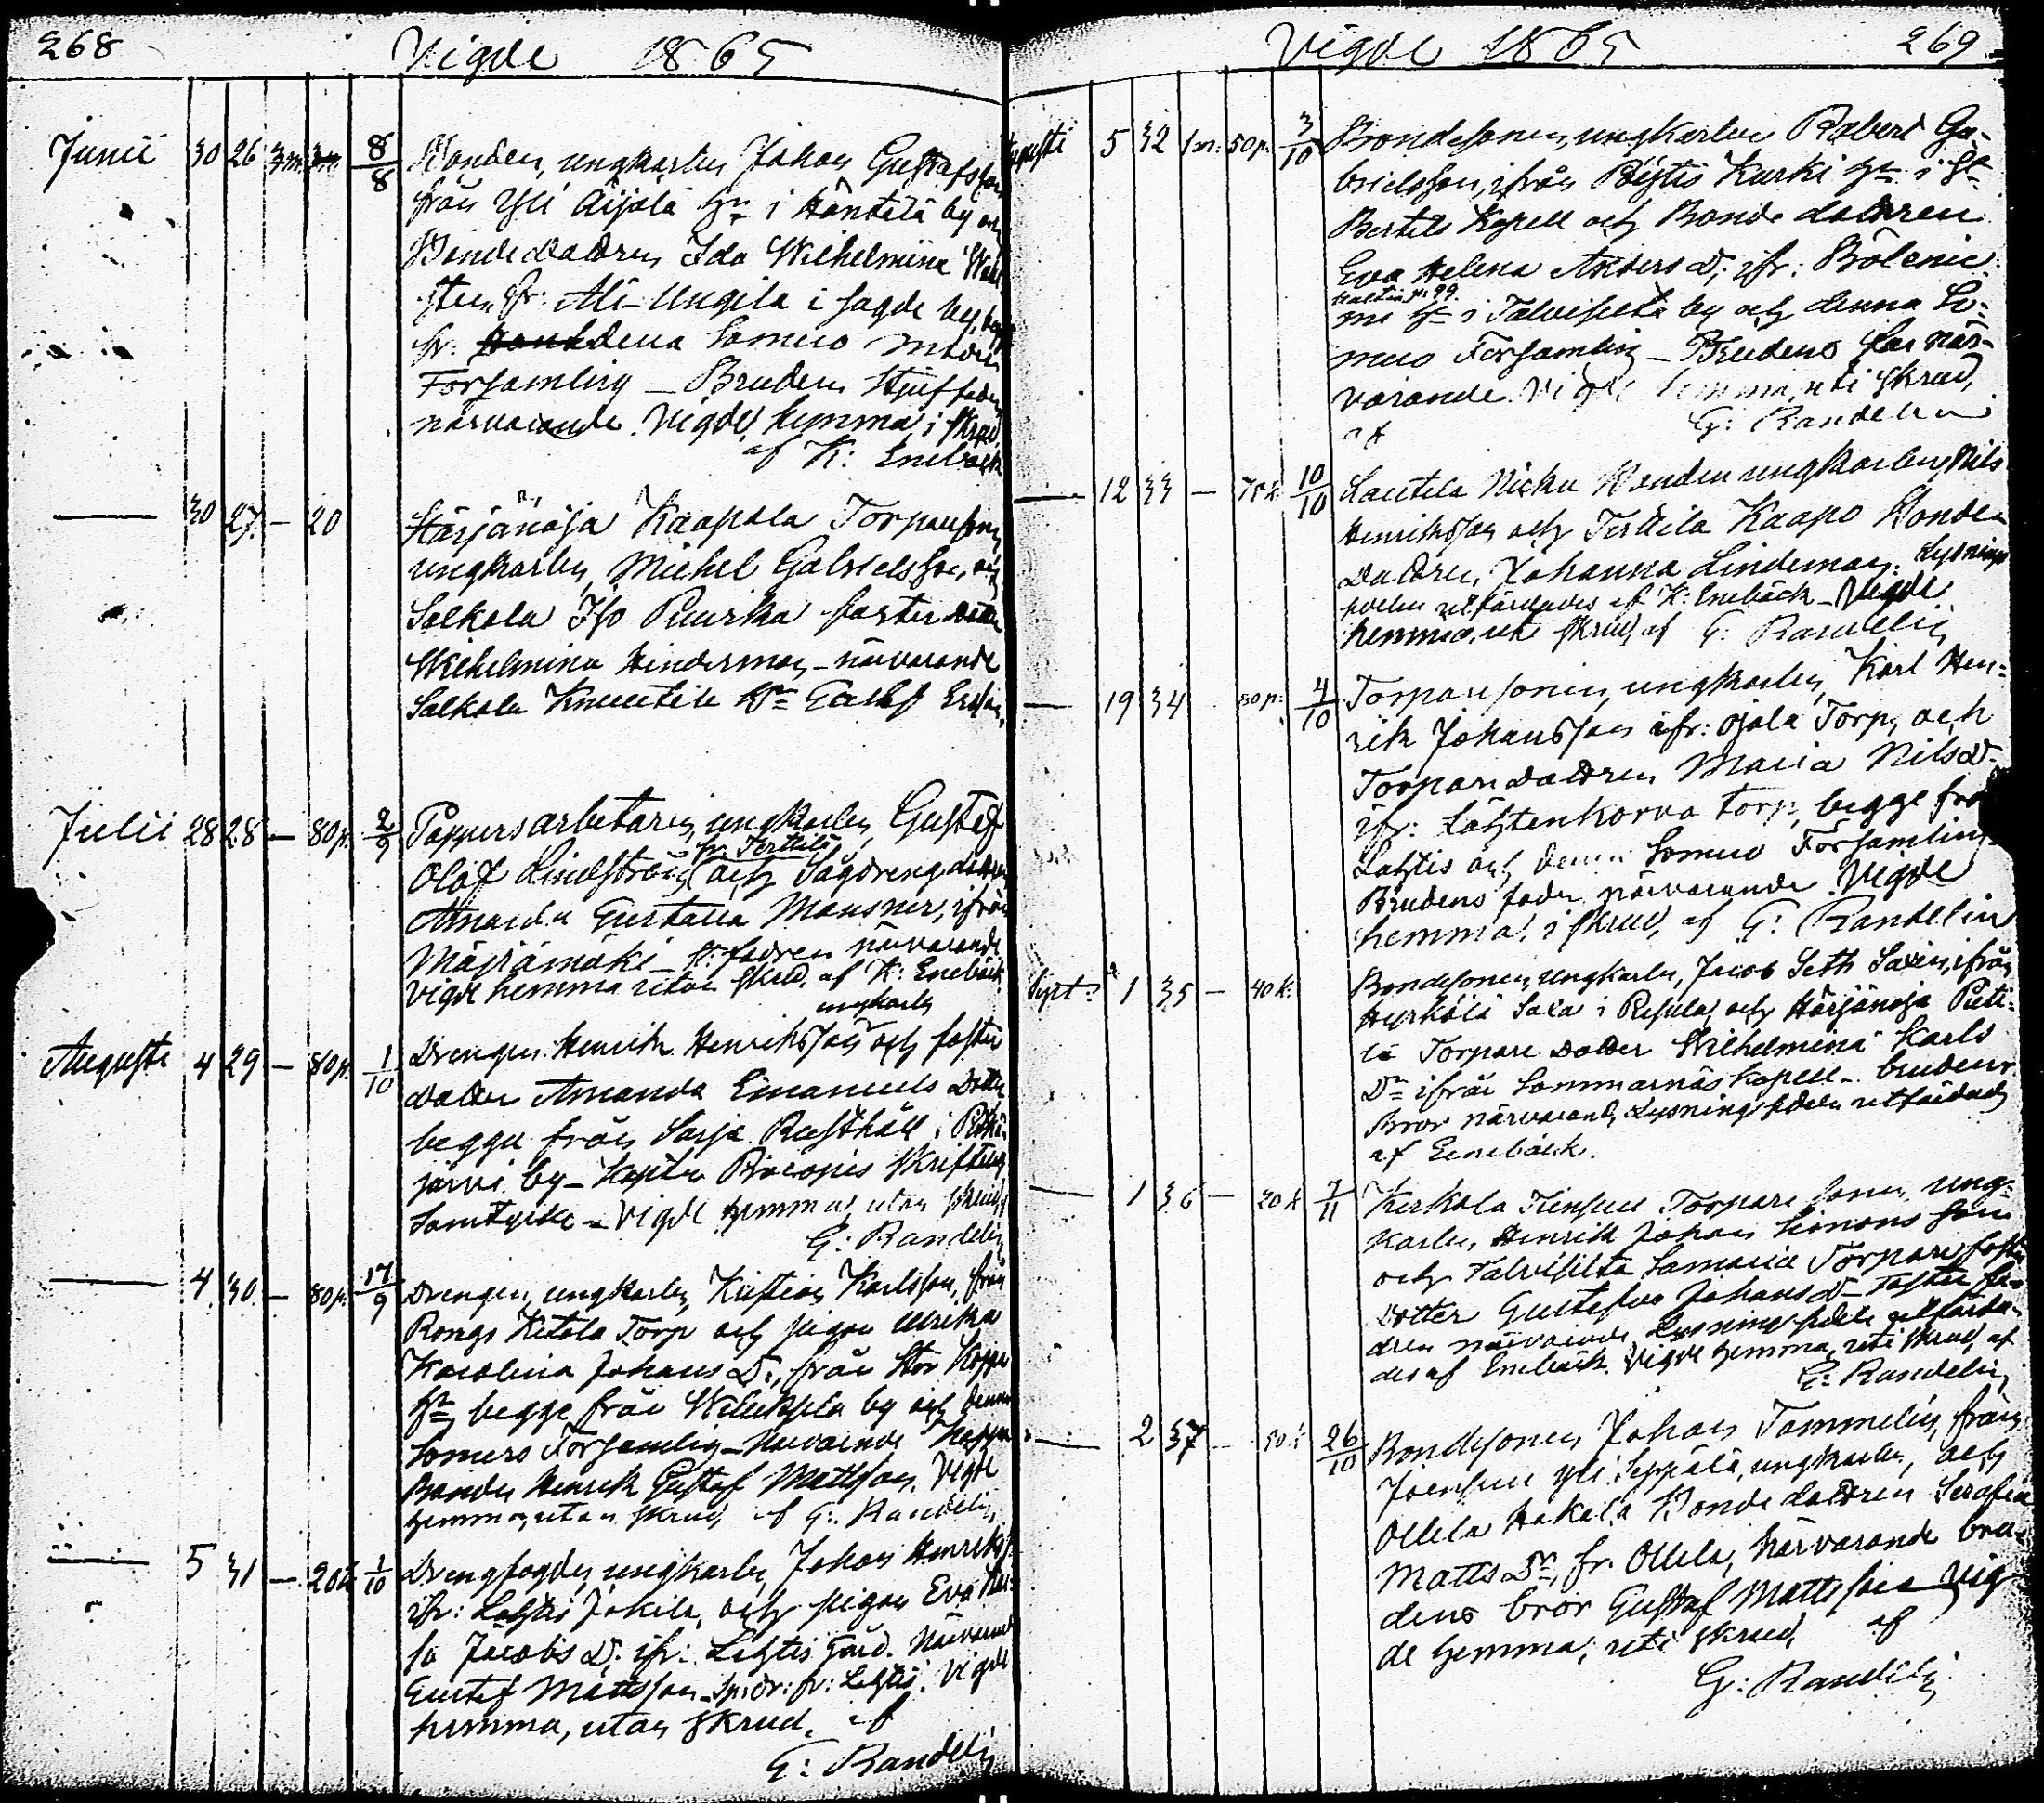 268
Vigde 1865
Junii 30 26 3m. 3m. 8/8 Bonden, ungkarlen Johan Gustafsson
från Yli Äijälä hn i Häntälä by och
Bondedottren Ida Wilhelmina
sten fr: Ali-Ungila i sagde by,
fr: denna Somero moder
Församling _ Brudens Stjuffader
närvarande. Vigde hemma i skrud,
af K: Enebäck
30 27. - 20 Härjänoja Kaapola Torparsonen
ungkarlen, Michel Gabrielsson, och
Salkola Iso Puurka foster
Wilhelmina Hinderman - närvarande
Salkola Knuutila Gustaf
Julii 28 28 - 80p. 2/9 Pappersarbetaren, ungkarlen, Gustaf
fr. Terttilä
Olof Lindström och Sågdreng
Amanda Gustava Mansner, ifrån
Mäyrämäki _ fadren närvarande
Vigde hemma utan skrud, af K: Enebäck
ungkarlen
Augusti 4 29 - 80p. 1/10 Drengen Henrik Henriksson och foster
dotter Amanda Emanuels Dotter
begge från Sarja Rusthåll i
järvi by - skriftliga
Samtycke - Vigde hemma, utan skrud
G: Randelin
4. 30. - 80p. 17/9 Drengen, ungkarlen, Kristian Karlsson, från
Rongo Ketola Torp och pigan Ulrika
Karolina Johans D:, från Stor
hn, begge från by och denna
Somero Församling - Närvarande
Bonden Henrik Gustaf Mattsson, Vigde
hemma, utan skrud, af G: Randelin,
5 31 - 20k 1/10 Drengfogden, ungkarlen, Johan Henriks
ifr: Lahtis Jokila, och pigan Eva
sa Jacobs D: ifr: Lahtis Gård. Närvarande
Gustaf Mattsson fr: Lahtis. Vigde
hemma, utan skrud, af
G: Randelin
Vigde 1865
269
Augusti 5 32 1m: 50p. 3/10 Bondesonen, ungkarlen Robert Ga-
brielsson, ifrån Pöytis Kurki hn i St
Bertils Kapell och Bonde dottren
Eva Helena Anders D: ifr:
hn i Talvisilta by och denna So-
mero Församling - Brudens far när-
varande. Vigde hemma, uti skrud,
af G: Randelin
12 33 - 75k 10/10 Lautela Nicku Bonden ungkarlen Nils
Henriksson och Terttilä Kaapo Bonde-
Dottren, Johanna Lindeman. Lysnings
sedeln utfärdades af K: Enebäck - Vigde
hemma, uti skrud, af G: Randelin
19 34 80p: 4/10 Torparesonen, ungkarlen, Karl Hen-
rik Johansson ifr: Ojala Torp, och
Torparedottren Maria Nils D.
ifr: Lähtenkorva torp, begge från
Lahtis och denna Somero Församling
Brudens fader närvarande. Vigde
hemma, i skrud, af G: Randelin
Sept: 1 35 - 40k. Bondesonen, ungkarlen, Jacob Seth Saxen, ifrån
Hyrkölä Sala i och Härjänoja
Torpare dotter Wilhelmina Karls
Dr ifrån Sommarnäs Kapell - brudens
Bror närvarande, Lysnings sedeln utfärdad
af Enebäck.
1 36 - 20k 7/11 Kerkola Torpare sonen, ung-
karlen, Henrik Johan Simons son
och Talvisilta Torpare foster
Dotter Gustafva Johans D - foster fa-
dren närvarande, Lysnings sedeln utfärda-
des af Enebäck. Vigde hemma, uti skrud, af
G: Randelin
2 37 - 50k 26/10 Bondesonen Johan Tammelin, från
Joensuu Yli Seppälä, ungkarlen, och
Ollila Hakala Bonde dottren Serafia
Matts Dr, fr. Ollila, närvarande bru-
dens bror Gustaf Mattsson vig-
de hemma, uti skrud, af
G: Randelin